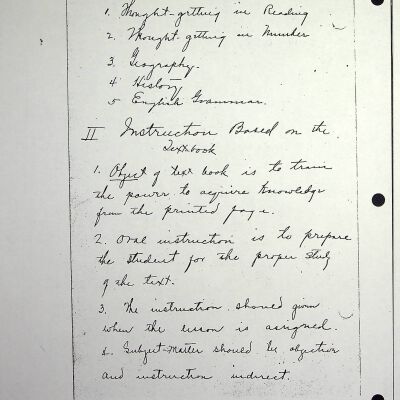 1. Thought-getting in Reading
2. Thought-getting in Number
3. Geography.
4 History
5 English Grammar.
II Instruction Based on the
Textbook
1. Object of text book is to train
the power to acquire knowledge
from the printed page.
2. Oral instruction is to prepare
the student for the proper study
of the text.
3. The instruction should given
when the lesson is assigned.
4. Subject-matter should be objective
and instruction indirect.